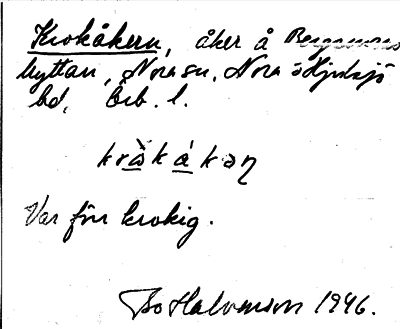 Krokåkern, åker å Bergsmans
hyttan, Nora sn, Nora o Hjulsjö
bd, Örb. l.
kråkákəŋ
Var förr krokig.
Bo Halvarson 1946.